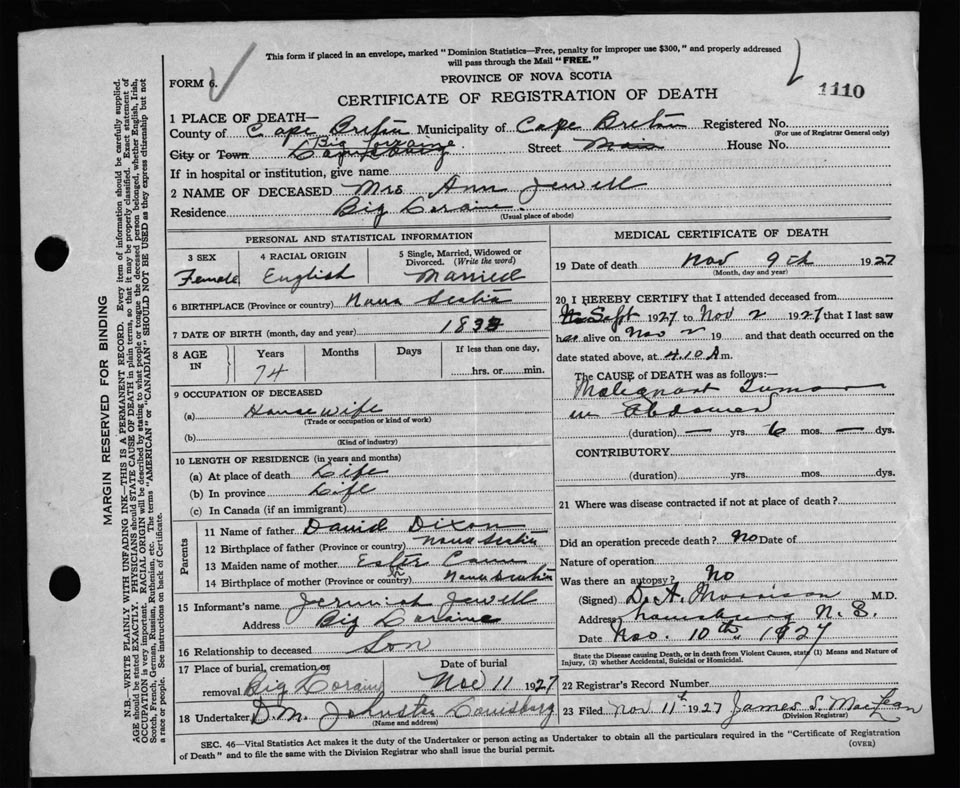 This form if placed in an envelope, marked "Dominion Statistics—Free, penalty for improper use $300," and properly addressed
will pass through the Mail "FREE."
FORM 6.
PROVINCE OF NOVA SCOTIA
1110
CERTIFICATE OF REGISTRATION OF DEATH
1 PLACE OF DEATH—
County of Cape Breton Municipality of Cape Breton Registered No.
(For use of Registrar General only)
City or Town Big Lorraine Street House No.
If in hospital or institution, give name
2 NAME OF DECEASED Mrs Ann Jewell
Residence Big Loraine
(Usual place of abode)
PERSONAL AND STATISTICAL INFORMATION
3 SEX 4 RACIAL ORIGIN 5 Single, Married, Widowed or Divorced. (Write the word)
Female English Married
6 BIRTHPLACE (Province or country) Nova Scotia
7 DATE OF BIRTH (month, day and year)
8 AGE IN Years Months Days If less than one day,
74 hrs. or min.
9 OCCUPATION OF DECEASED
(a) Housewife
(Trade or occupation or kind of work)
(b)
(Kind of industry)
10 LENGTH OF RESIDENCE (in years and months)
(a) At place of death Life
(b) In province Life
(c) In Canada (if an immigrant)
Parents
11 Name of father David Dixon
12 Birthplace of father (Province or country) Nova Scotia
13 Maiden name of mother Esther
14 Birthplace of mother (Province or country) Nova Scotia
15 Informant's name Jermiah Jewell
Address Big Loraine
16 Relationship to deceased Son
17 Place of burial, cremation or removal Big Loraine Date of burial Nov 11 1927
18 Undertaker D.M. Johnston Louisburg
(Name and address)
MEDICAL CERTIFICATE OF DEATH
19 Date of death Nov 9th 1927
(Month, day and year)
20 I HEREBY CERTIFY that I attended deceased from
Sept 1927 to Nov 2 1927 that I last saw
her alive on Nov 2 19 and that death occurred on the
date stated above, at 4.10 A m.
The CAUSE of DEATH was as follows:—
Malignant Tumor
in Abdomen
(duration) — yrs. 6 mos. — dys.
CONTRIBUTORY
(duration) yrs. mos. dys.
21 Where was disease contracted if not at place of death?
Did an operation precede death? No Date of
Nature of operation
Was there an autopsy? No
(Signed) D. A. Morrison M.D.
Address Louisburg N. S.
Date Nov. 10th 1927
State the Disease causing Death, or in death from Violent Causes, state (1) Means and Nature of
Injury, (2) whether Accidental, Suicidal or Homicidal.
22 Registrar's Record Number
23 Filed Nov 11th 1927 James S. MacLean
(Division Registrar)
SEC. 46—Vital Statistics Act makes it the duty of the Undertaker or person acting as Undertaker to obtain all the particulars required in the "Certificate of Registration
of Death" and to file the same with the Division Registrar who shall issue the burial permit.
(OVER)
MARGIN RESERVED FOR BINDING
N.B.—WRITE PLAINLY WITH UNFADING INK—THIS IS A PERMANENT RECORD. Every item of information should be carefully supplied.
AGE should be stated EXACTLY. PHYSICIANS should STATE CAUSE OF DEATH in plain terms, so that it may be properly classified. Exact statement of
OCCUPATION is very important. RACIAL ORIGIN will be described by stating to what people or tongue the deceased person belonged, whether English, Irish,
Scotch, French, German, Russian, Ruthenian, etc. The terms "AMERICAN" or "CANADIAN" SHOULD NOT BE USED as they express citizenship but not
a race or people. See instructions on back of Certificate.